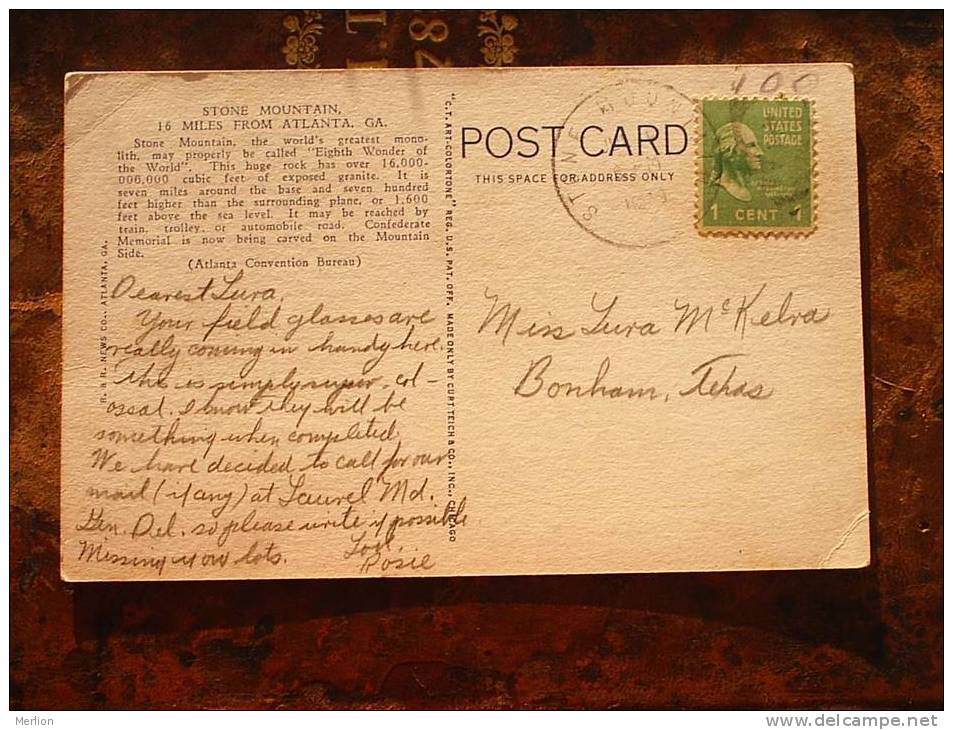 STONE MOUNTAIN,
16 MILES FROM ATLANTA, GA.
Stone Mountain, the world's greatest mono-
lith, may properly be called "Eighth Wonder of
the World". This huge rock has over 16,000-
000,000 cubic feet of exposed granite. It is
seven miles around the base and seven hundred
feet higher than the surrounding plane, or 1,600
feet above the sea level. It may be reached by
train, trolley, or automobile road. Confederate
Memorial is now being carved on the Mountain
Side.
(Atlanta Convention Bureau)
R. & R. NEWS CO., ATLANTA, GA.
Dearest Lura,
Your field glasses are
really coming in handy here.
This is simply super, col-
ossal. I know they will be
something when completed.
We have decided to call for our
mail (if any) at Laurel Md.
Gen. Del. so please write if possible.
Missing you lots.
Rosie
"C.T. ART-COLORTONE" REG. U.S. PAT. OFF. MADE ONLY BY CURT TEICH & CO., INC., CHICAGO
POST CARD
THIS SPACE FOR ADDRESS ONLY
STONE MOUN
400
UNITED
STATES
POSTAGE
1 CENT 1
Miss Lura McKelva
Bonham, Texas
84
L.I.
Merlion
www.delcampe.net